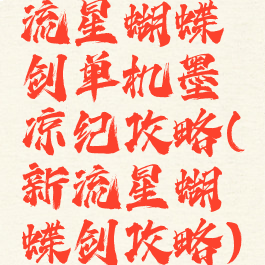 流星蝴蝶
剑单机墨
凉纪攻略(
新流星蝴
蝶剑攻略)